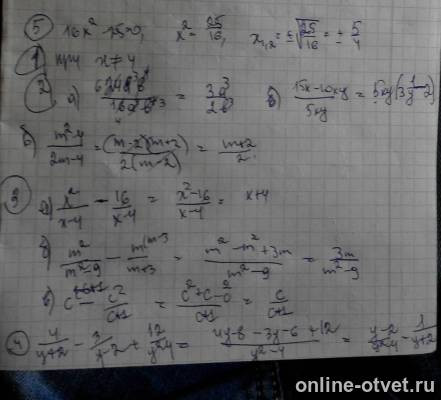 5 16x² - 25=0, x² = 25/16, x₁,₂ = ±√25/16 = ± 5/4
1 при x ≠ 4
2 а) = 3a³/2b³ в) 5xy
б) m²-4/2m-4 = (m-2)(m+2)/2(m-2) = m+2/2
3 а) x²/x-4 - 16/x-4 = x²-16/x-4 = x+4
б) m²/m²-9 - m/m+3 = m²-m²+3m/m²-9 = 3m/m²-9
в) c - c²/c+1 = c²+c-c²/c+1 = c/c+1
4 4/y+2 - 3/y-2 + 12/y²-4 = 4y-8-3y-6+12/y²-4 = y-2/y²-4 = 1/y+2
online-otvet.ru